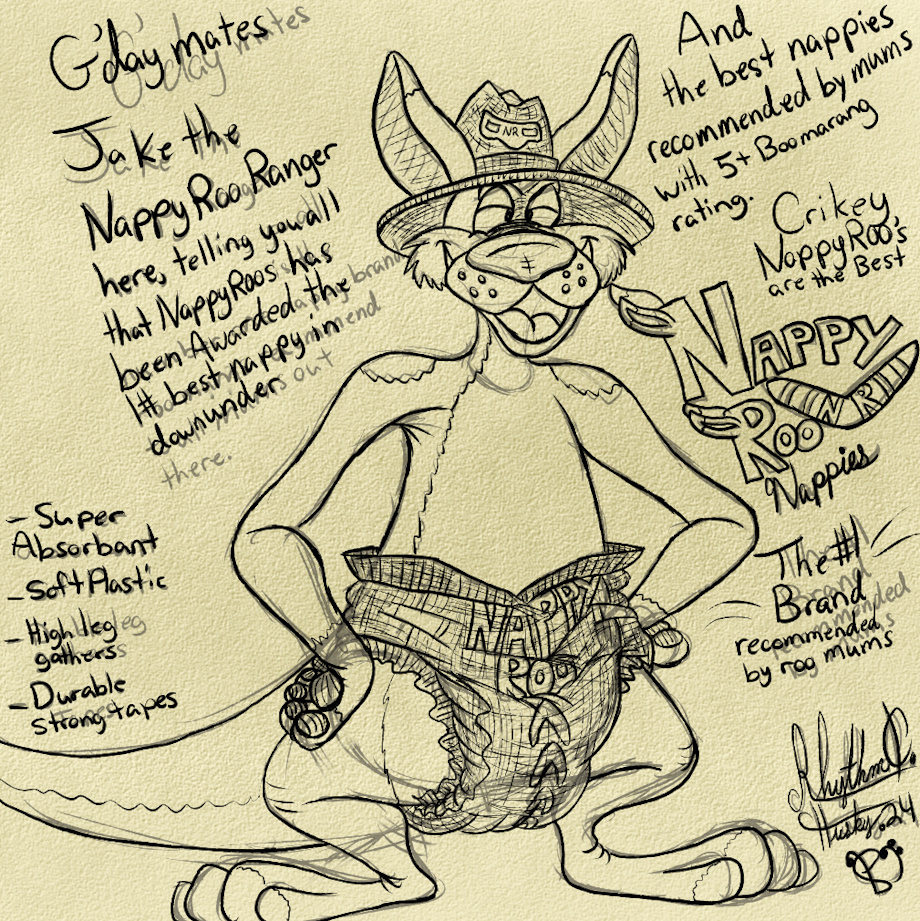 G'day mates
Jake the
NappyRooRanger
here, telling you all
that NappyRoos has
been Awarded the
1# best nappy in
downunder
there.
- Super
Absorbant
- Soft Plastic
- High leg
gathers
- Durable
strong tapes
NR
NAPPY
ROO
And
the best nappies
recommended by mums
with 5+ Boomarang
rating.
Crikey
NappyRoo's
are the Best
NAPPY
ROO
Nappies
The #1
Brand
recommended
by roo mums
Husky. 24